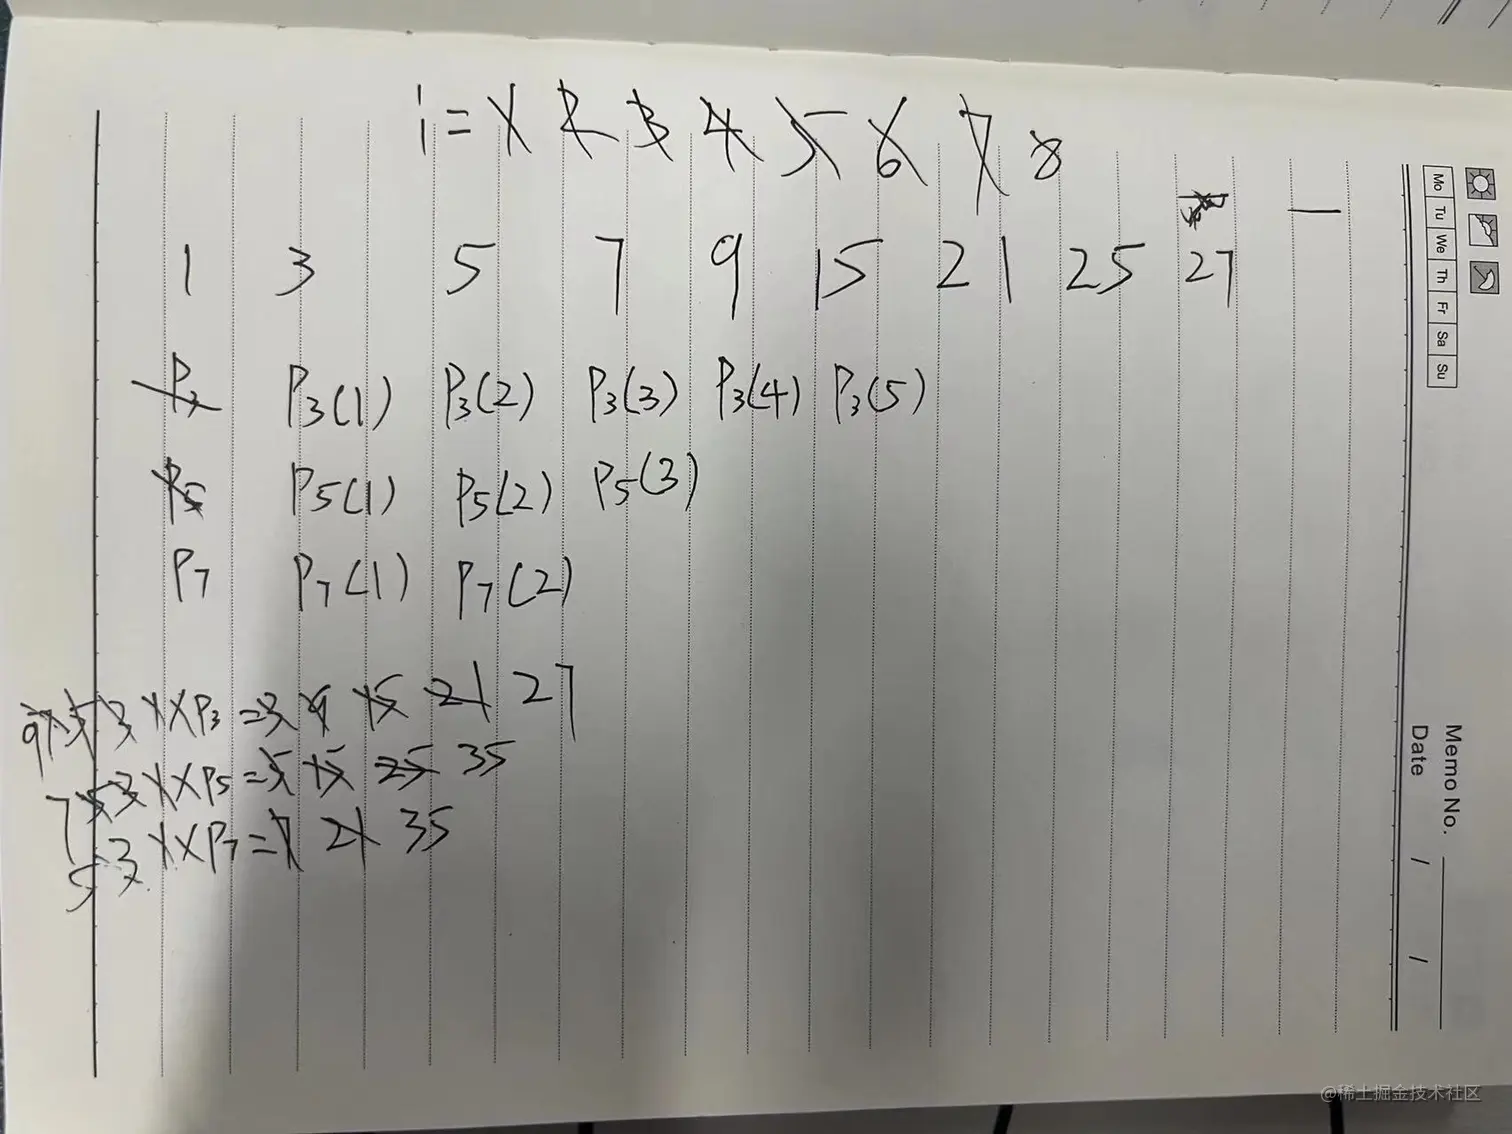 i = 1 2 3 4 5 6 7 8
1 3 5 7 9 15 21 25 27
P3 P3(1) P3(2) P3(3) P3(4) P3(5)
P5 P5(1) P5(2) P5(3)
P7 P7(1) P7(2)
9 7 5 3 1 X P3 = 3 9 15 21 27
7 5 3 1 X P5 = 5 15 25 35
5 3 1 X P7 = 7 21 35
Mo Tu We Th Fr Sa Su
Memo No.
Date / /
@稀土掘金技术社区